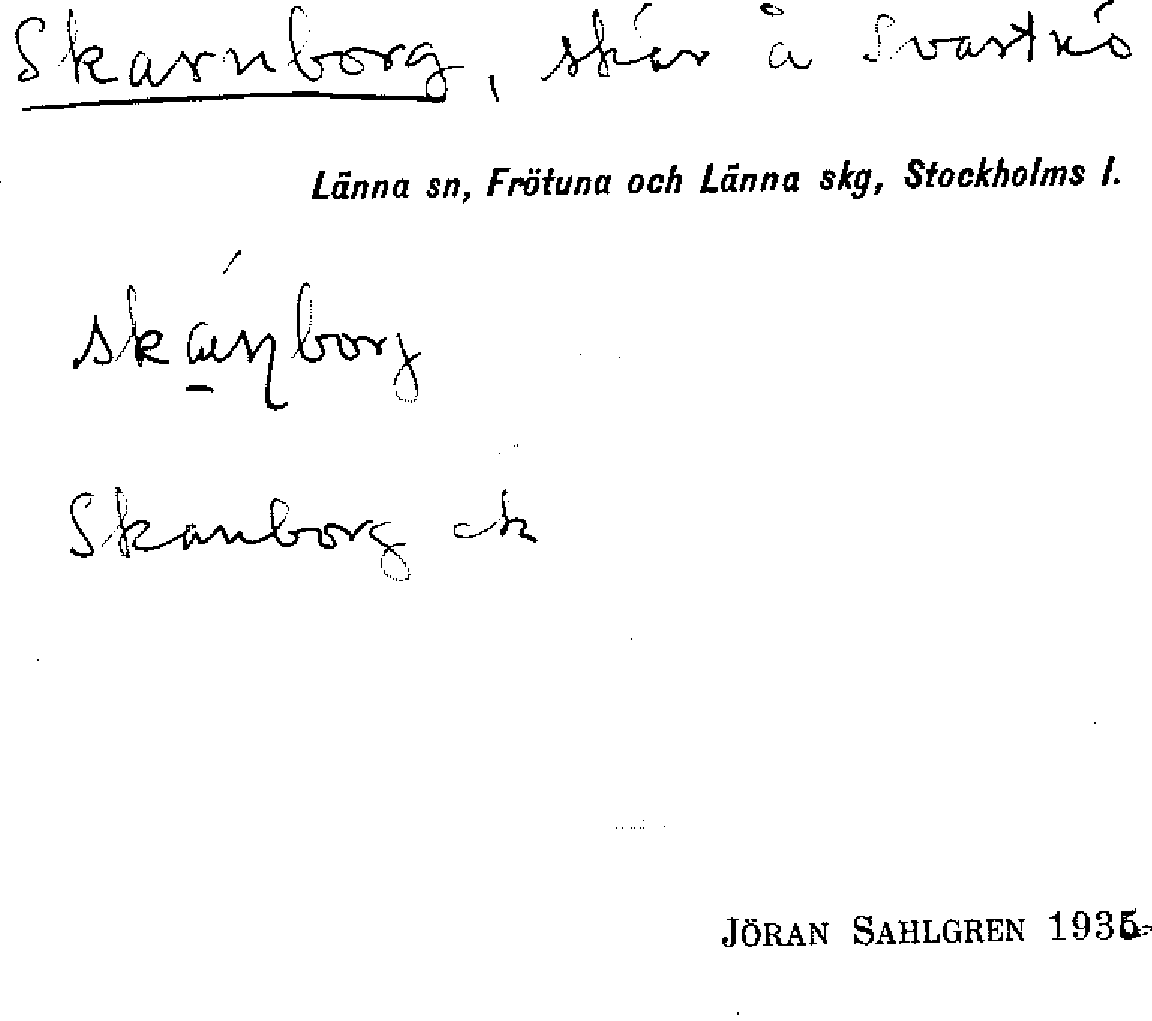 Skarnborg, skär å Svartnö
Länna sn, Frötuna och Länna skg, Stockholms l.
skáɳborg
Skanborg ek
JÖRAN SAHLGREN 1935